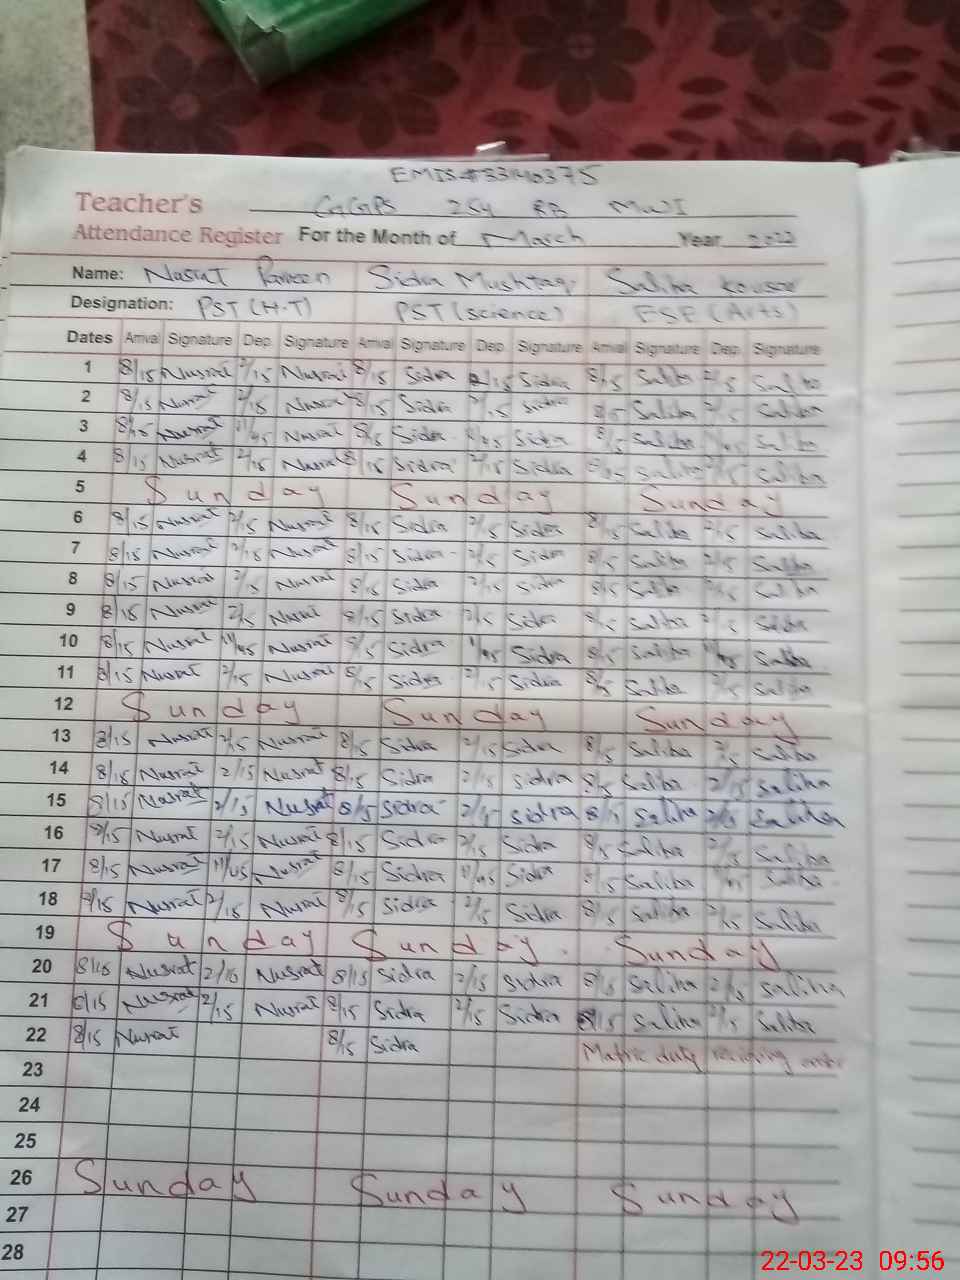 EMIS#33140375
Teacher's GGPS 254 RB
Attendance Register For the Month of March Year 2023
Name: Nusrat Parveen Sidra Mushtaq Saliha Kousar
Designation: PST (H.T) PST (science) ESE (Arts)
Dates Arrival Signature Dep. Signature Arrival Signature Dep. Signature Arrival Signature Dep. Signature
1 8/15 Nusrat 2/15 Nusrat 8/15 Sidra 2/15 Sidra 8/15 Saliha 2/15 Saliha
2 8/15 Nusrat 2/15 Nusrat 8/15 Sidra 2/15 Sidra 8/15 Saliha 2/15 Saliha
3 8/15 Nusrat 11/45 Nusrat 8/15 Sidra 11/45 Sidra 8/15 Saliha 11/45 Saliha
4 8/15 Nusrat 2/15 Nusrat 8/15 Sidra 2/15 Sidra 8/15 Saliha 2/15 Saliha
5 Sunday Sunday Sunday
6 8/15 Nusrat 2/15 Nusrat 8/15 Sidra 2/15 Sidra 8/15 Saliha 2/15 Saliha
7 8/15 Nusrat 2/15 Nusrat 8/15 Sidra 2/15 Sidra 8/15 Saliha 2/15 Saliha
8 8/15 Nusrat 2/15 Nusrat 8/15 Sidra 2/15 Sidra 8/15 Saliha 2/15 Saliha
9 8/15 Nusrat 2/15 Nusrat 8/15 Sidra 2/15 Sidra 8/15 Saliha 2/15 Saliha
10 8/15 Nusrat 11/45 Nusrat 8/15 Sidra 11/45 Sidra 8/15 Saliha 11/45 Saliha
11 8/15 Nusrat 2/15 Nusrat 8/15 Sidra 2/15 Sidra 8/15 Saliha 2/15 Saliha
12 Sunday Sunday Sunday
13 8/15 Nusrat 2/15 Nusrat 8/15 Sidra 2/15 Sidra 8/15 Saliha 2/15 Saliha
14 8/15 Nusrat 2/15 Nusrat 8/15 Sidra 2/15 sidra 8/15 Saliha 2/15 Saliha
15 8/15 Nusrat 2/15 Nusrat 8/15 Sidra 2/15 sidra 8/15 Saliha 2/15 Saliha
16 8/15 Nusrat 2/15 Nusrat 8/15 Sidra 2/15 Sidra 8/15 Saliha 2/15 Saliha
17 8/15 Nusrat 11/45 Nusrat 8/15 Sidra 11/45 Sidra 8/15 Saliha 11/45 Saliha
18 8/15 Nusrat 2/15 Nusrat 8/15 Sidra 2/15 Sidra 8/15 Saliha 2/15 Saliha
19 Sunday Sunday Sunday
20 8/15 Nusrat 2/15 Nusrat 8/15 Sidra 2/15 Sidra 8/15 Saliha 2/15 Saliha
21 8/15 Nusrat 2/15 Nusrat 8/15 Sidra 2/15 Sidra 8/15 Saliha 2/15 Saliha
22 8/15 Nusrat 8/15 Sidra Matric duty reciving order
23
24
25
26 Sunday Sunday Sunday
27
28
22-03-23 09:56